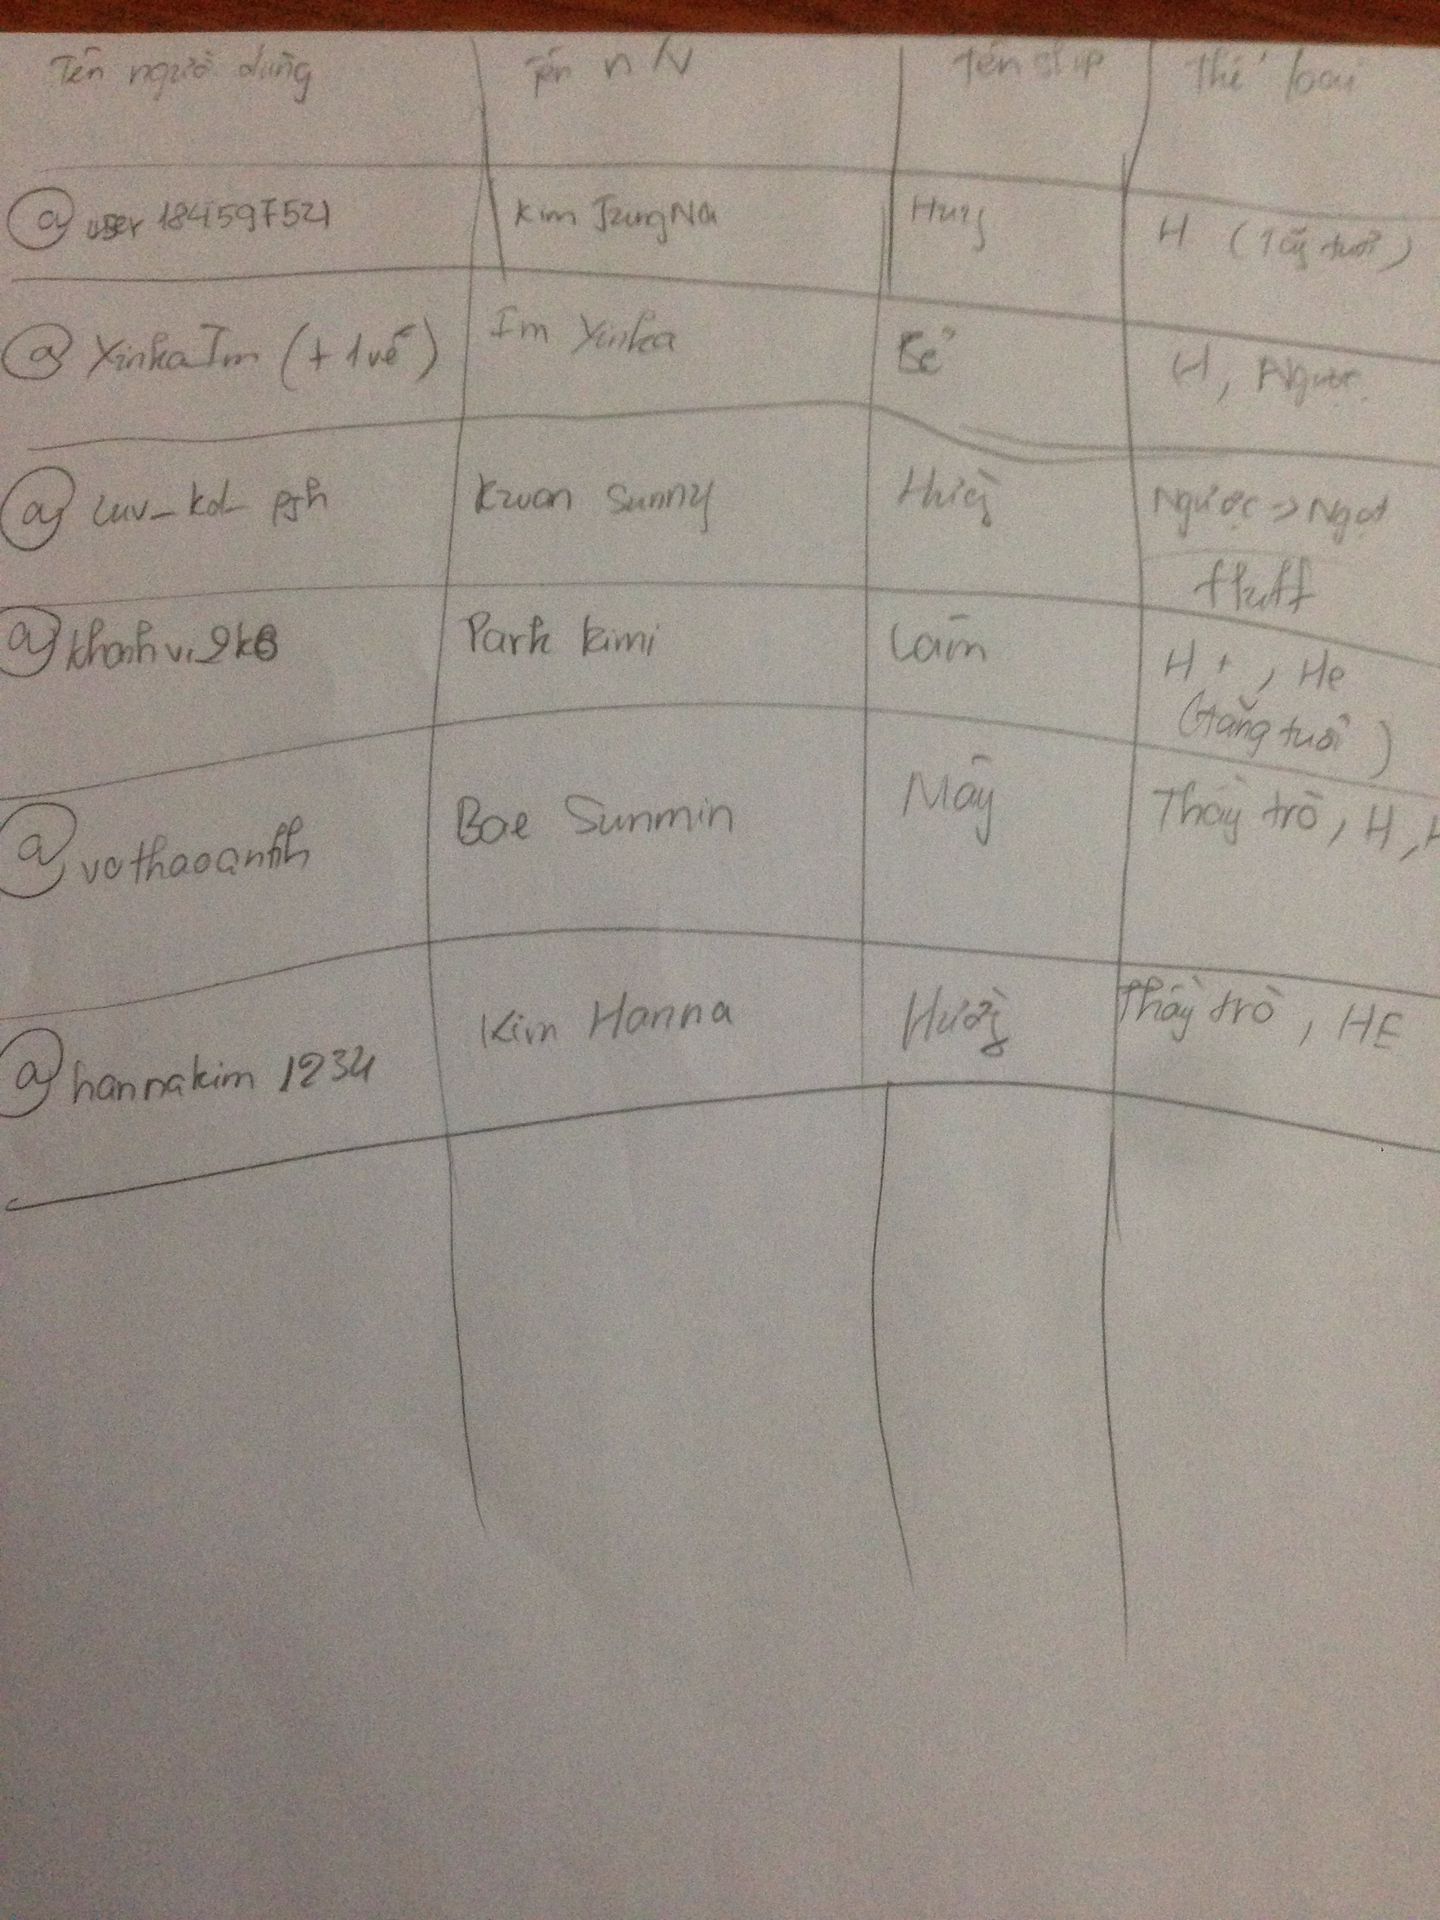 Tên người dùng Tên n/v Tên shíp Thể loại
@user 184597521 Kim JungNa H
@XinkaIm (+ 1 vế) Im Yinka Bé H, Ngược
@luv_kd_psh Kwon Sunny Ngược -> Ngọt
fluff
@khanhvi2k6 Park Kimi Lâm H+, He
(tăng tuổi)
@vothaoanhh Bae Sunmin Mây Thầy trò, H,
@hannakim 1234 Kim Hanna Hường Thầy trò, HE